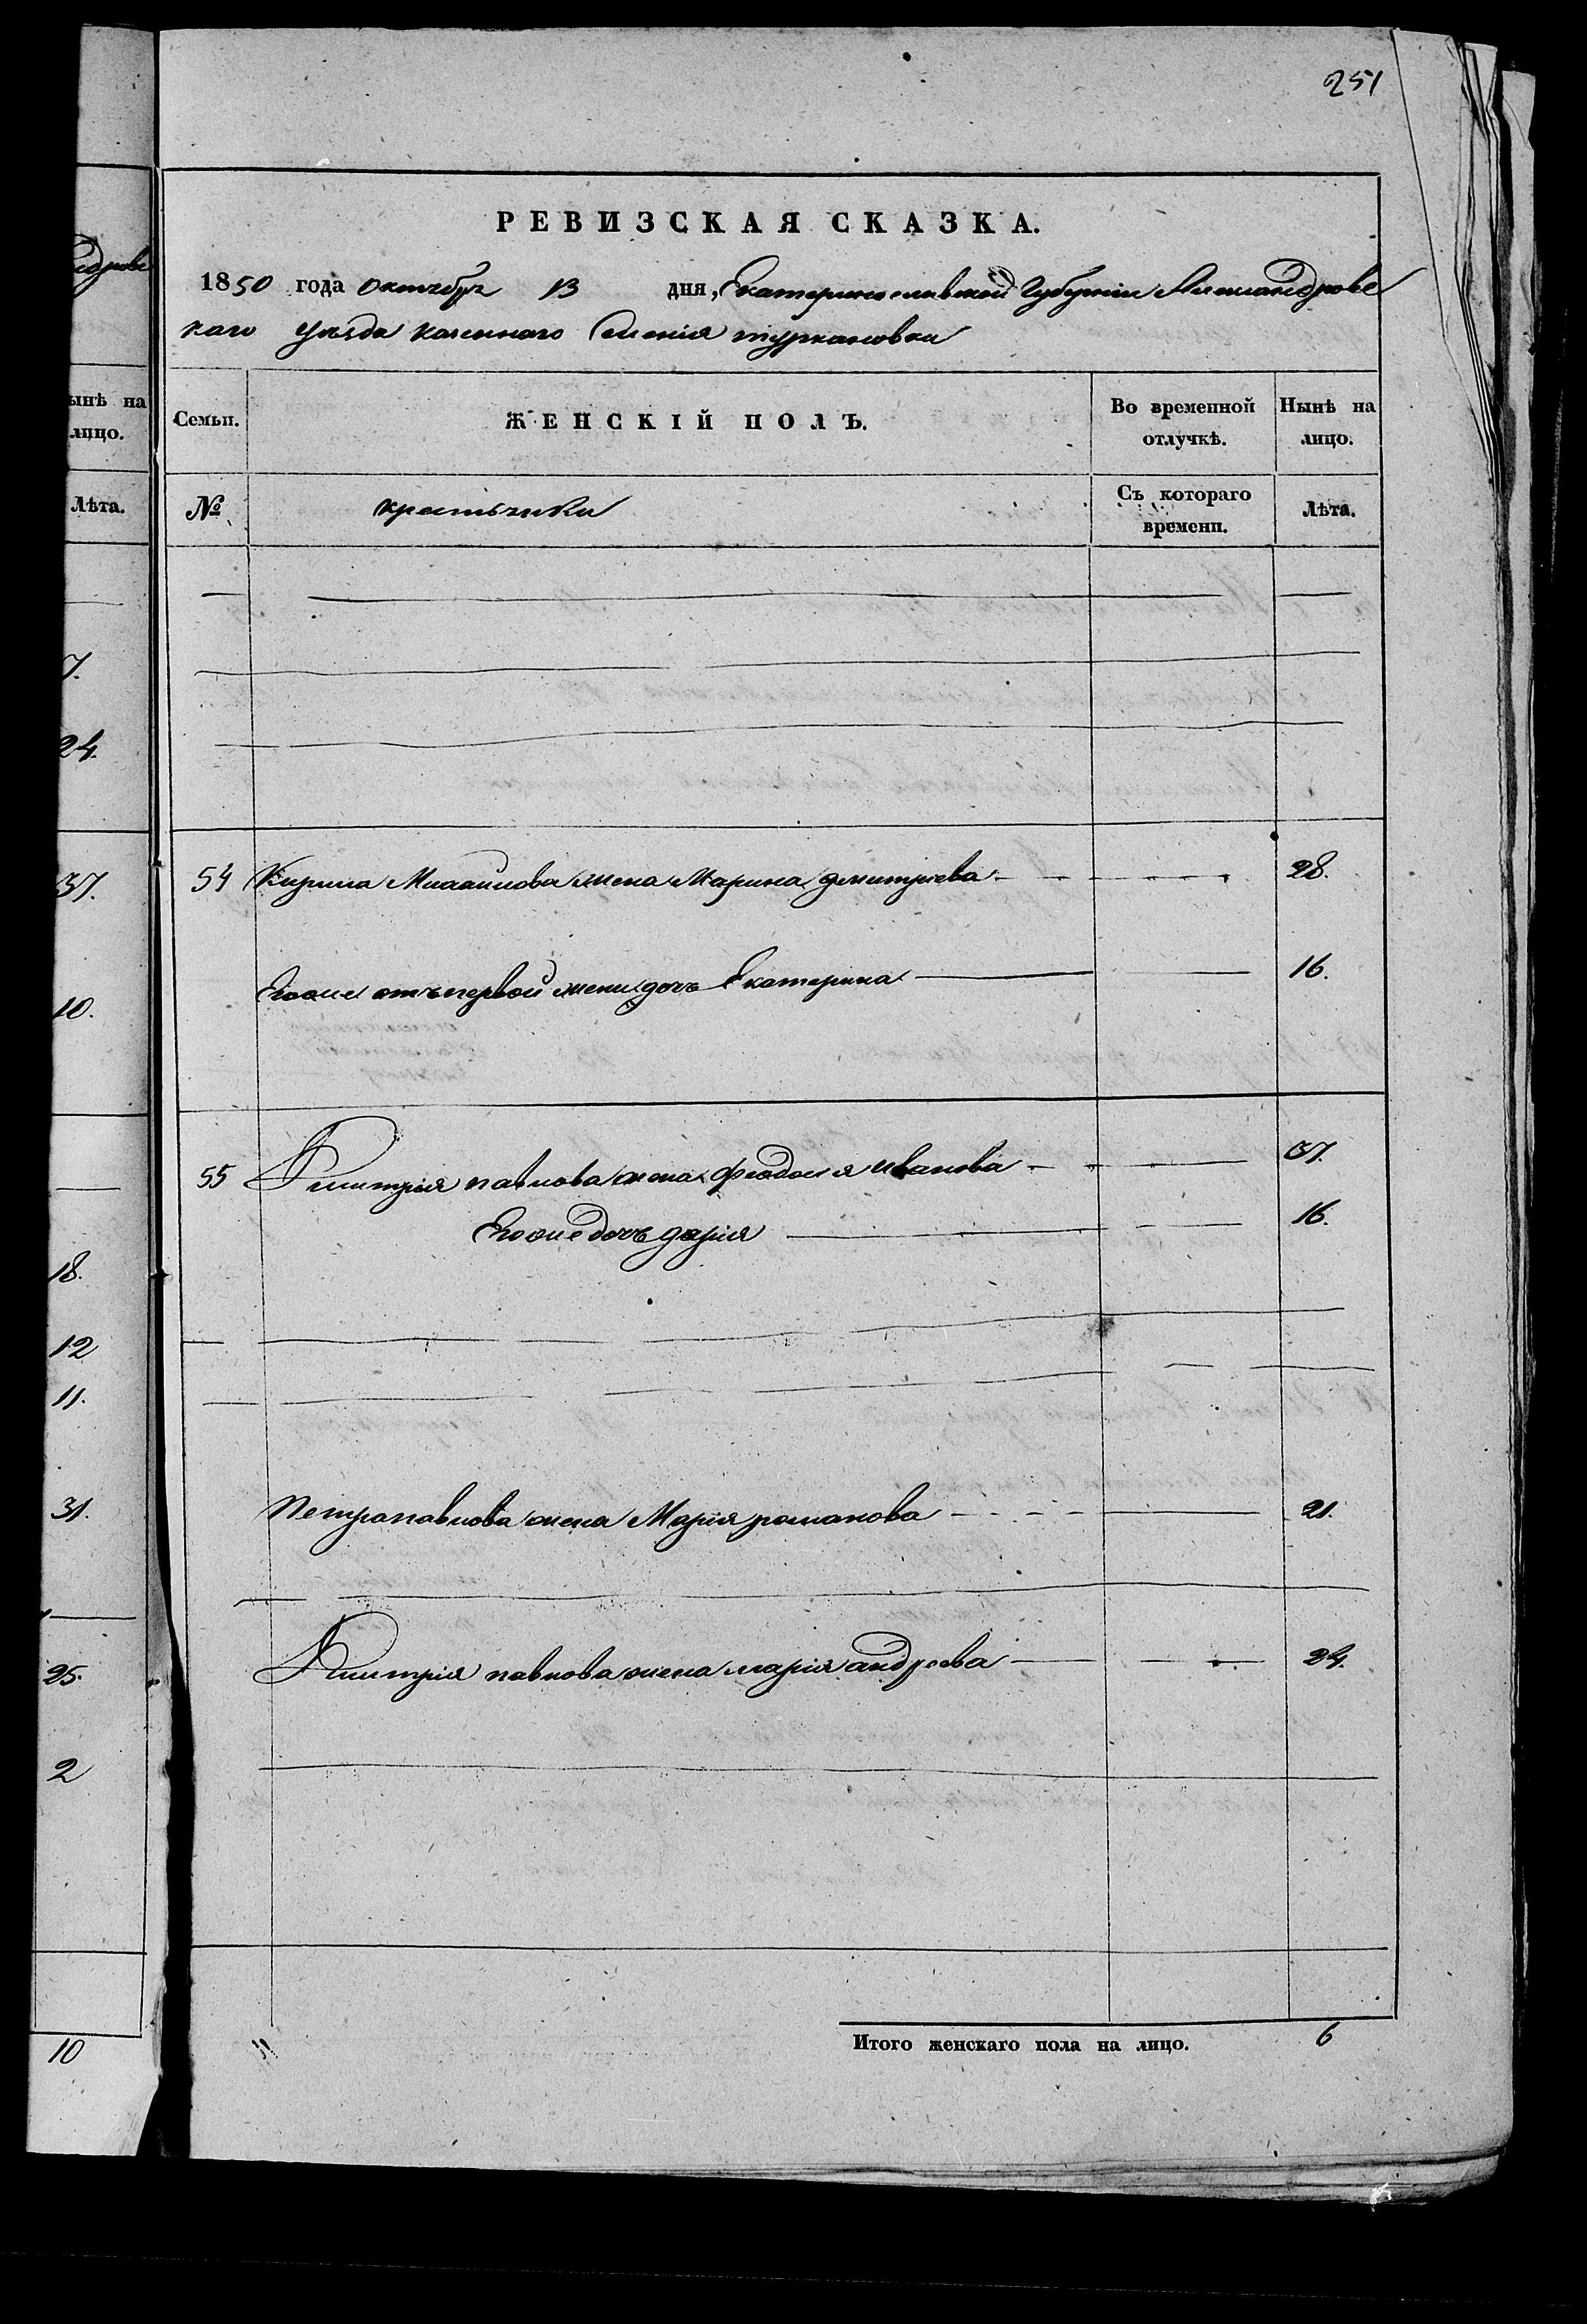 251
РЕВИЗСКАЯ СКАЗКА.
1850 года октября 13 дня, Екатеринославской Губернии Александровс
каго уезда казеннаго Селения туркановки
Семьи. ЖЕНСКІЙ ПОЛЪ. Во временной отлучкѣ. Нынѣ на лицо.
№ крестьянки Съ котораго времени. Лѣта.
54 Кирила Михайлова жена Марина дмитриева 28.
Егоже отъ первой жени дочь Екатерина 16.
55 Дмитрия павлова жена феодосия иванова 37.
Егоже дочь дария 16.
Петра павлова жена Мария романова 21.
Дмитрия павлова жена мария андреева 24.
Итого женскаго пола на лицо. 6
ынѣ на
лицо.
Лѣта.
7.
24.
37.
10.
18.
12
11.
31.
25.
2
10